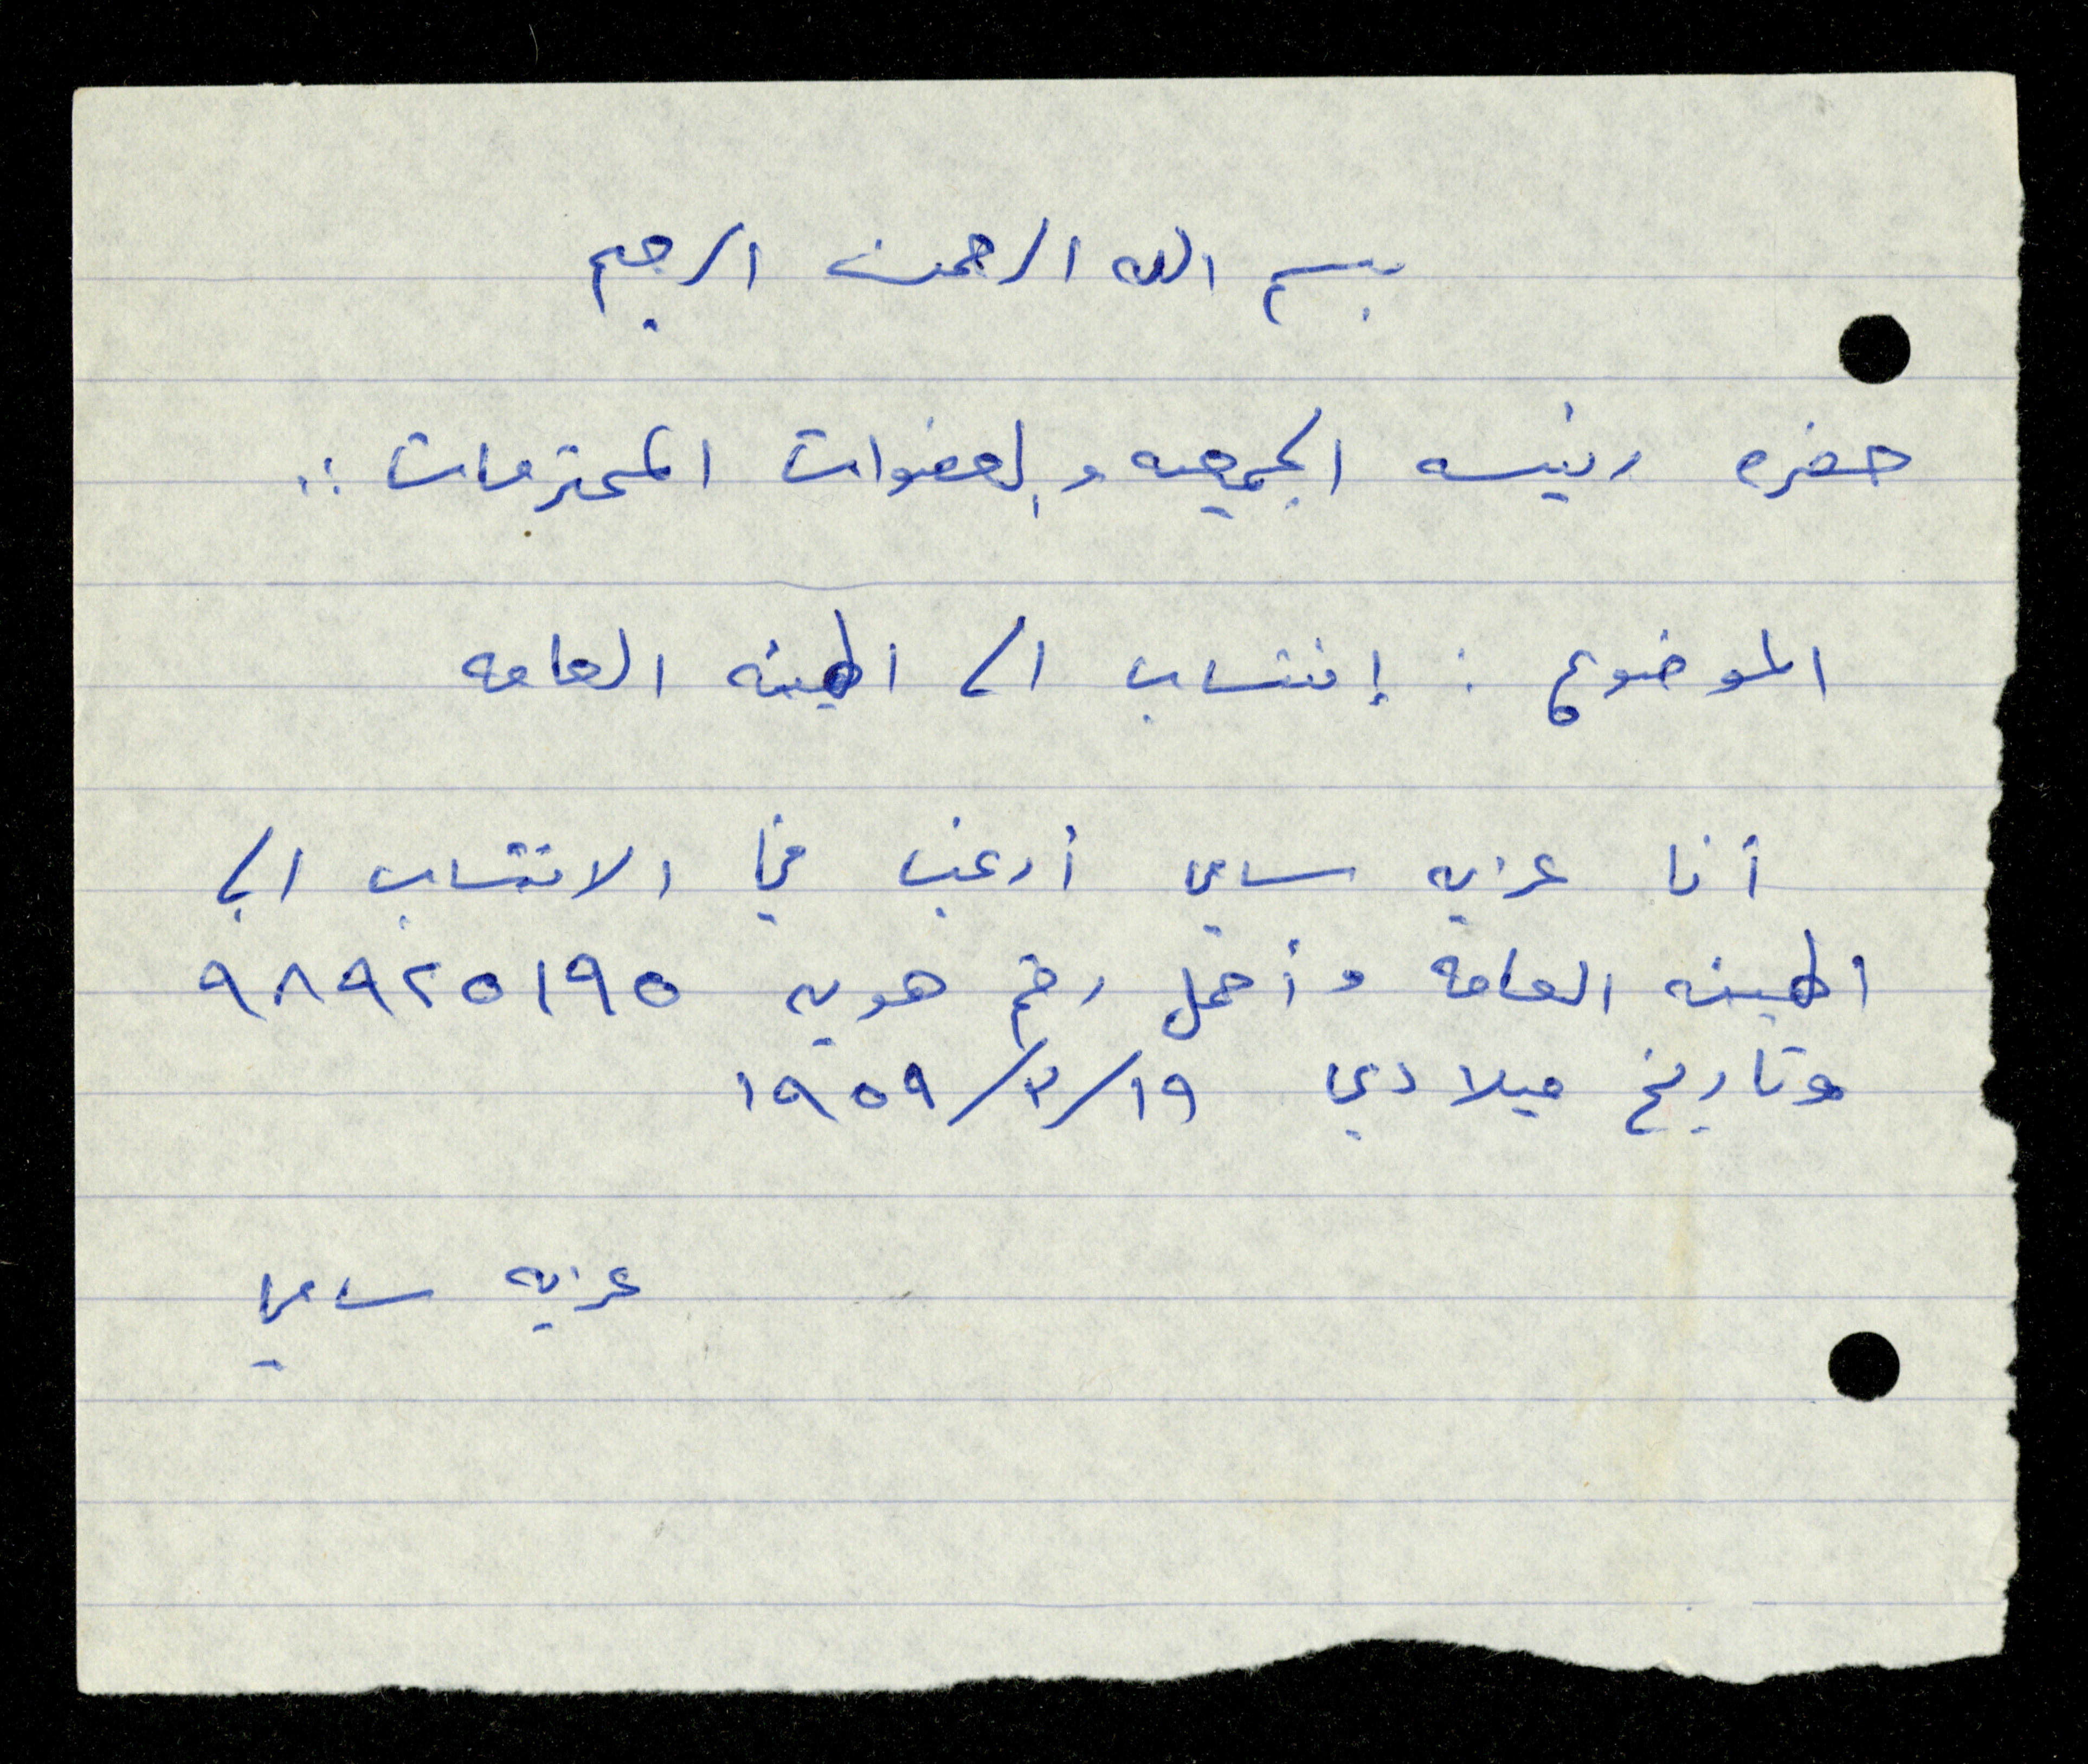 بسم الله الرحمن الرحيم
حضره رئيسه الجمعيه والعضوات المحترمات :.
الموضوع : إنتساب الى الهيئه العامه
أنا عزيه سامي أرغب في الانتساب الى
الهيئه العامه وأحمل رقم هويه ٩٨٩٢٥١٩٥
وتاريخ ميلادي ١٩/٣/١٩٥٩
عزيه سامي